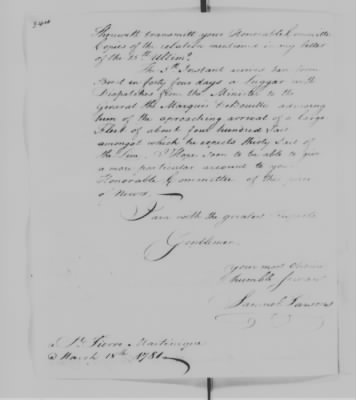 I herewith transmit your Honorable Committee
Copies of the relation mentioned in my letter
of the 15th Ultimo.
The 5th Instant arrived here from
Brest in forty four days a Luggar with
Dispatches from the Minister to the
General the Marquis De Bouillie advising
him of the aproaching arrival of a large
Fleet of about four hundred Sail
amongst which he expects thirty Sail of
the Line. I Hope soon to be able to give
a more particular account to your
Honorable Committee of this piece
of News.
I am with the greatest respects
Gentlemen
your most Obedient
humble Servant
St. Pierre Martinique
March 18th 1781